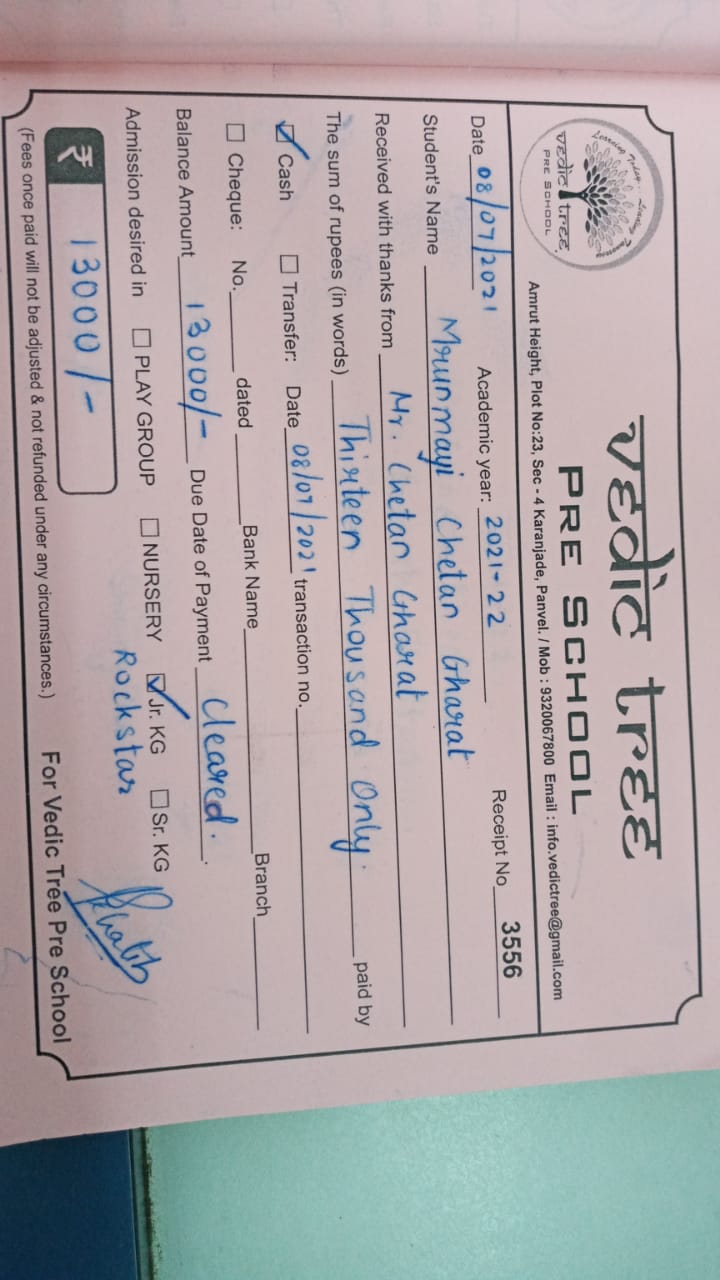 vedic tree
PRE SCHOOL
Learning Today... Living Tomorrow
vedic tree
PRE SCHOOL
Amrut Height, Plot No:23, Sec - 4 Karanjade, Panvel. / Mob : 9320067800 Email : info.vedictree@gmail.com
Date 08/07/2021 Academic year: 2021-22 Receipt No 3556
Student's Name Mrunmayi Chetan Gharat
Received with thanks from Mr. Chetan Gharat
The sum of rupees (in words) Thirteen Thousand Only. paid by
☑ Cash ☐ Transfer: Date 08/07/2021 transaction no.
☐ Cheque: No. dated Bank Name Branch
Balance Amount 13000/- Due Date of Payment Cleared.
Admission desired in ☐ PLAY GROUP ☐ NURSERY ☑ Jr. KG ☐ Sr. KG
Rockstar
₹ 13000/-
(Fees once paid will not be adjusted & not refunded under any circumstances.) For Vedic Tree Pre School